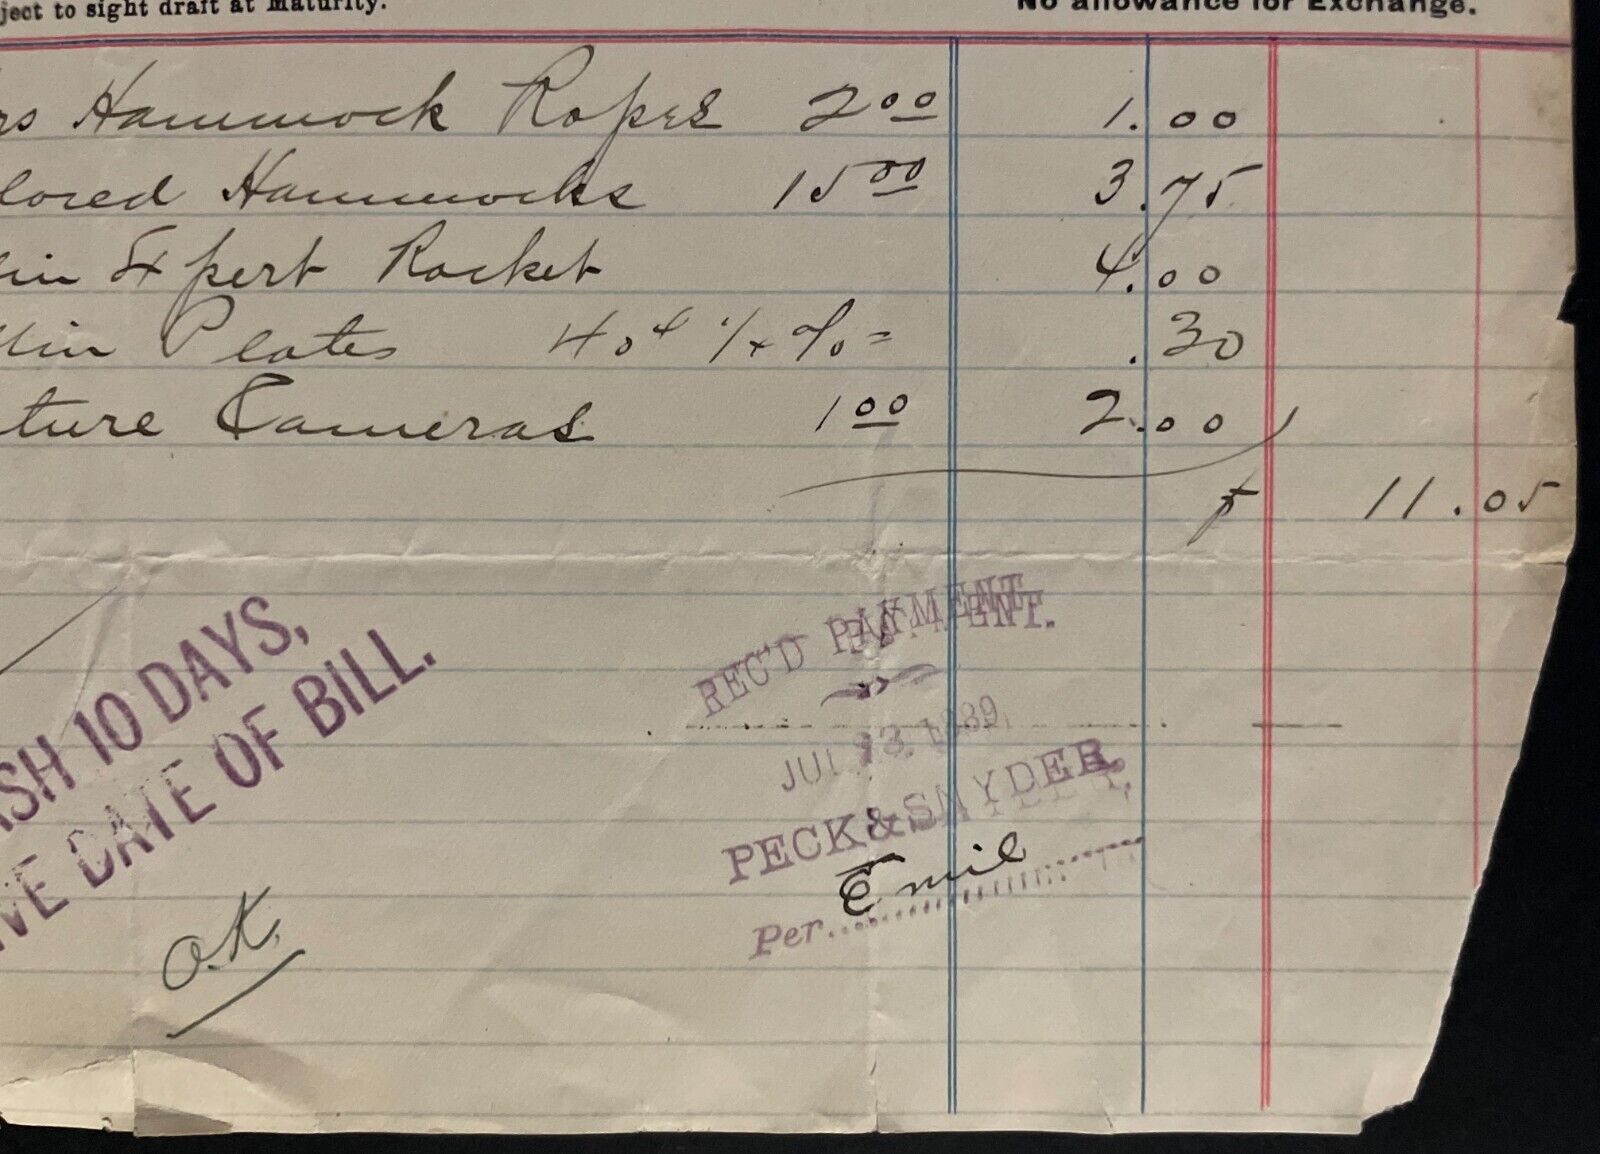 ject to sight draft at Maturity.
No allowance for Exchange.
rs Hammock Ropes 2 00 1.00
lored Hammocks 15 00 3.75
lin Expert Racket 4.00
Plates .30
ture Cameras 1 00 2.00
$ 11.05
SH 10 DAYS,
VE DATE OF BILL.
REC'D PAYMENT.
1889
PECK & SNYDER,
Per Emil
O.K.